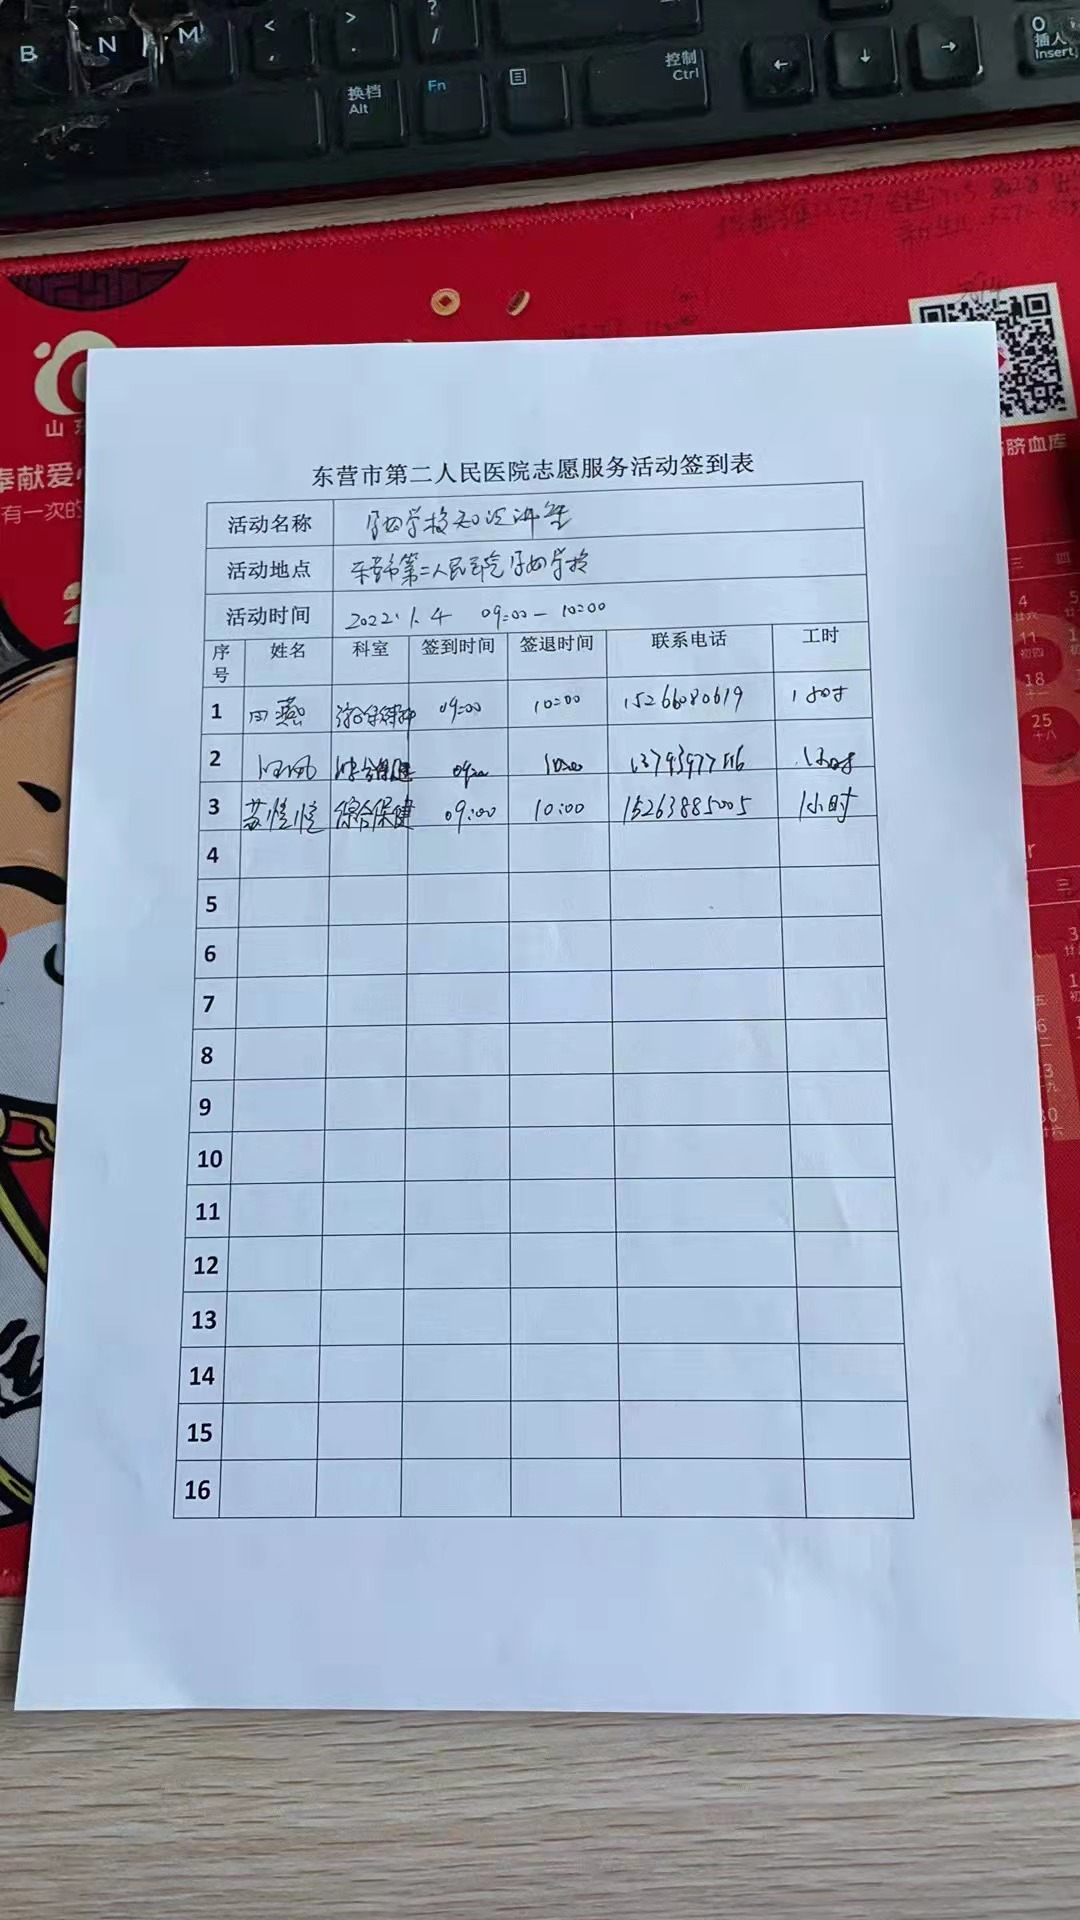 B N M < , > . ? /
换档 Alt
Fn
控制 Ctrl
← ↓ →
0 插入 Insert
山东
奉献爱
有一次的
脐血库
东营市第二人民医院志愿服务活动签到表
活动名称 孕妇学校知识讲座
活动地点 东营市第二人民医院孕妇学校
活动时间 2022.1.4 09:00-10:00
序号 姓名 科室 签到时间 签退时间 联系电话 工时
1 田燕 综合保健科 09:00 10:00 15266080619 1小时
2 综合保健 09:00 10:00 1小时
3 苏恺恺 综合保健 09:00 10:00 15263885005 1小时
4
5
6
7
8
9
10
11
12
13
14
15
16
三 四
4 廿六
11 初四
18 十一
25 十八
三